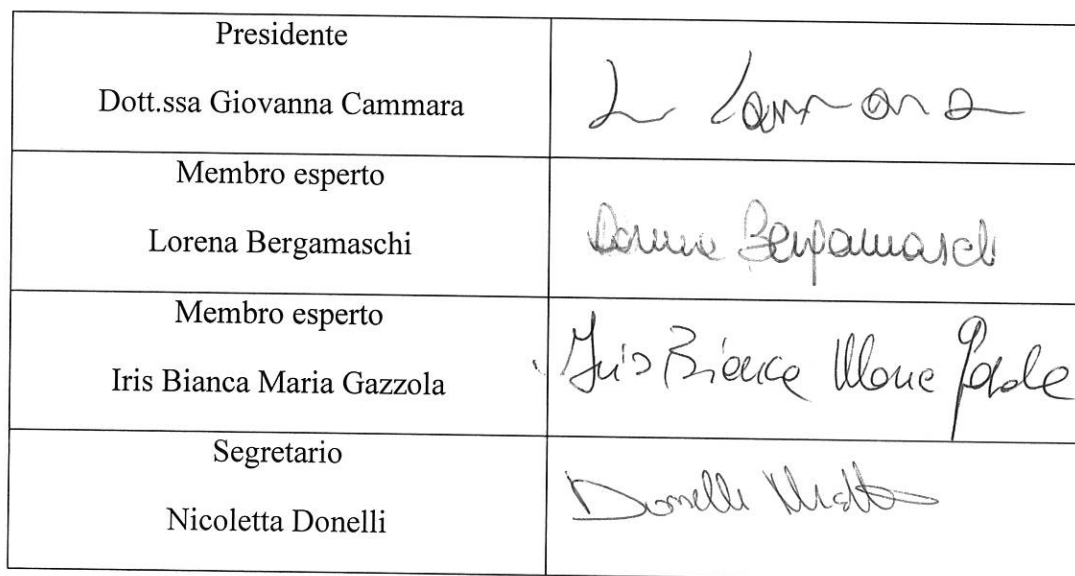 Presidente
Dott.ssa Giovanna Cammara
Membro esperto
Lorena Bergamaschi
Lorena Bergamaschi
Membro esperto
Iris Bianca Maria Gazzola
Iris Bianca Maria
Segretario
Nicoletta Donelli
Donelli